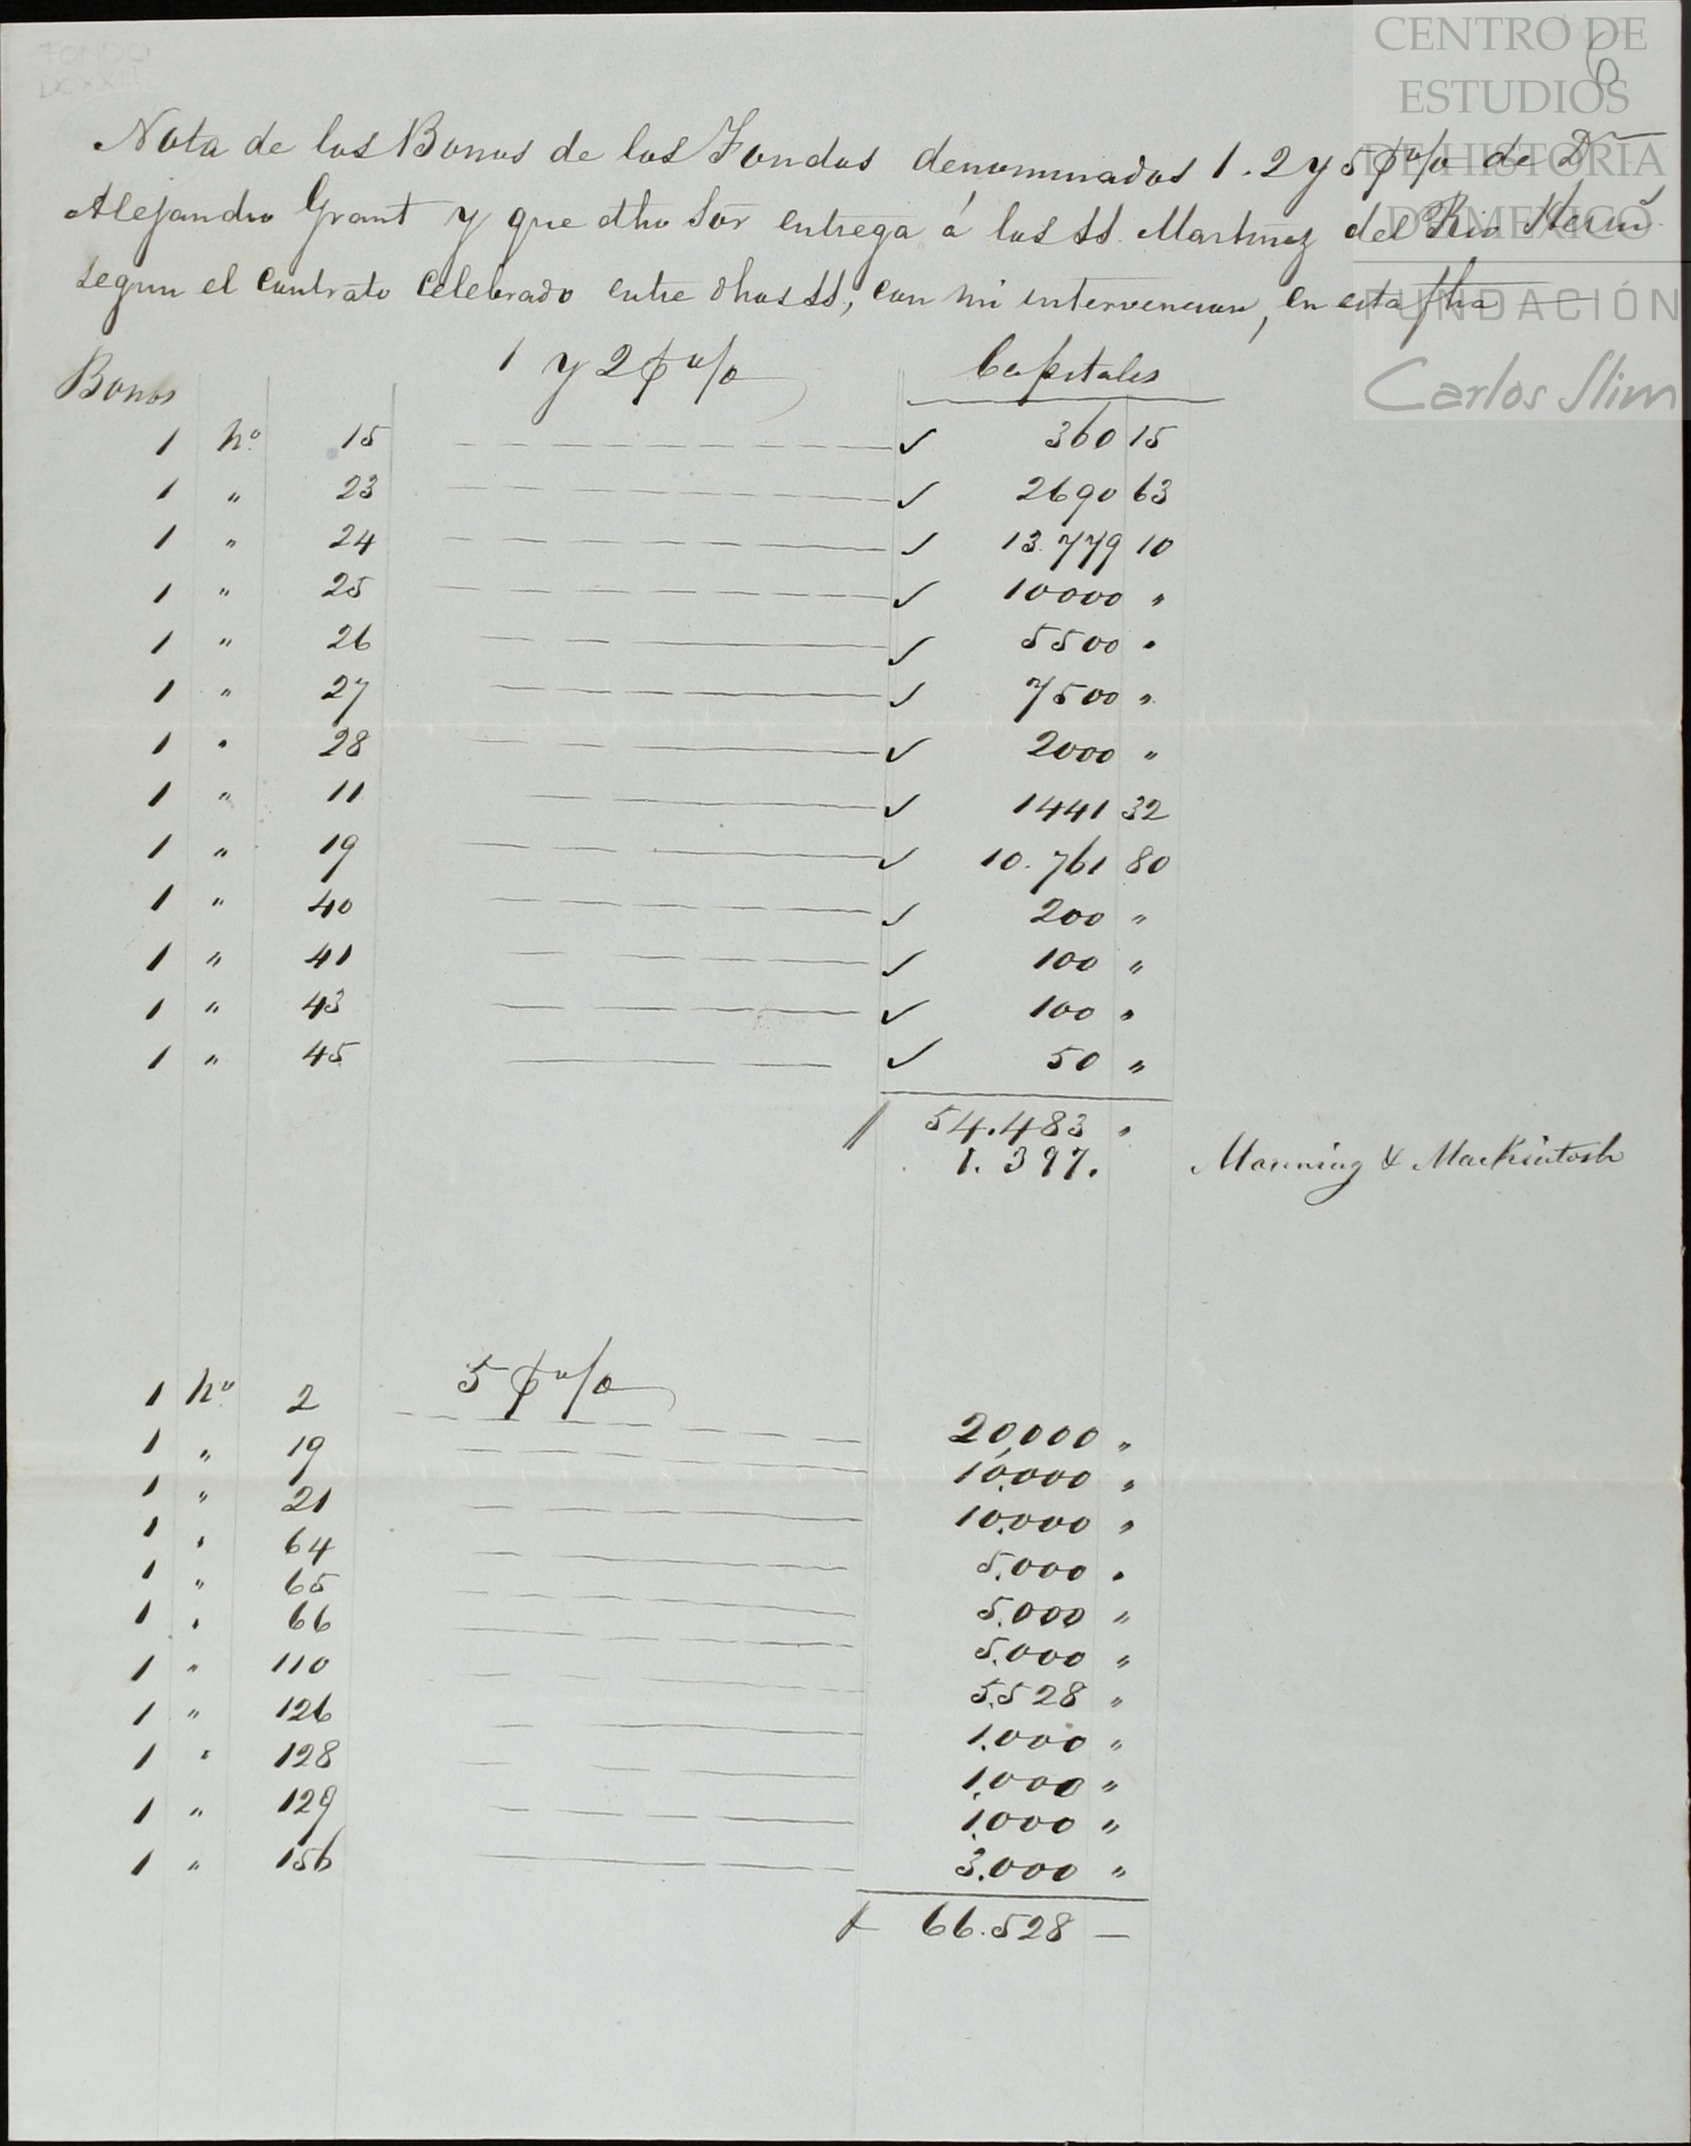 FONDO
DCXXIII
CENTRO DE
ESTUDIOS
DE HISTORIA
DE MEXICO
FUNDACIÓN
Carlos Slim
6
Nota de los Bonos de los Fondos denominados 1. 2 y 5 p% de Dn
Alejandro Grant y que dho Sor entrega á los SS. Martinez del Rio Herms
segun el contrato celebrado entre dhos SS, con mi intervencion, en esta fha
Bonos 1 y 2 p% Capitales
1 no 15 360 15
1 " 23 2690 63
1 " 24 13.779 10
1 " 25 10000 "
1 " 26 5500 "
1 " 27 7500 "
1 " 28 2000 "
1 " 11 1441 32
1 " 19 10.761 80
1 " 40 200 "
1 " 41 100 "
1 " 43 100 "
1 " 45 50 "
54.483 "
1.397. Manning & Mackintosh
5 p%
1 no 2 20,000 "
1 " 19 10,000 "
1 " 21 10,000 "
1 " 64 5.000 "
1 " 65 5.000 "
1 " 66 5.000 "
1 " 110 5.528 "
1 " 126 1.000 "
1 " 128 1.000 "
1 " 129 1.000 "
1 " 156 3.000 "
66.528 —